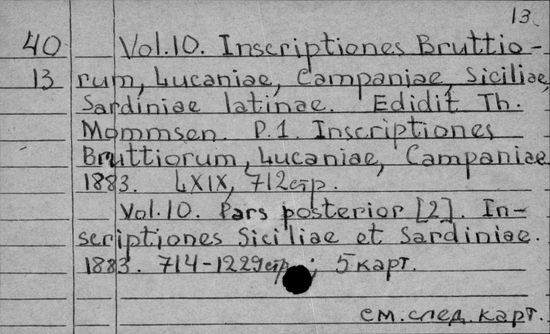 13.
40 Vol.10. Inscriptiones Bruttio-
13 rum, Lucaniae, Campaniae, Siciliae,
Sardiniae latinae. Edidit Th.
Mommsen. P.1. Inscriptiones
Bruttiorum, Lucaniae, Campaniae
1883. LXIX, 712стр.
Vol.10. Pars posterior [2]. In-
scriptiones Siciliae et Sardiniae.
1883. 714-1229стр.; 5 карт.
см.след.карт.